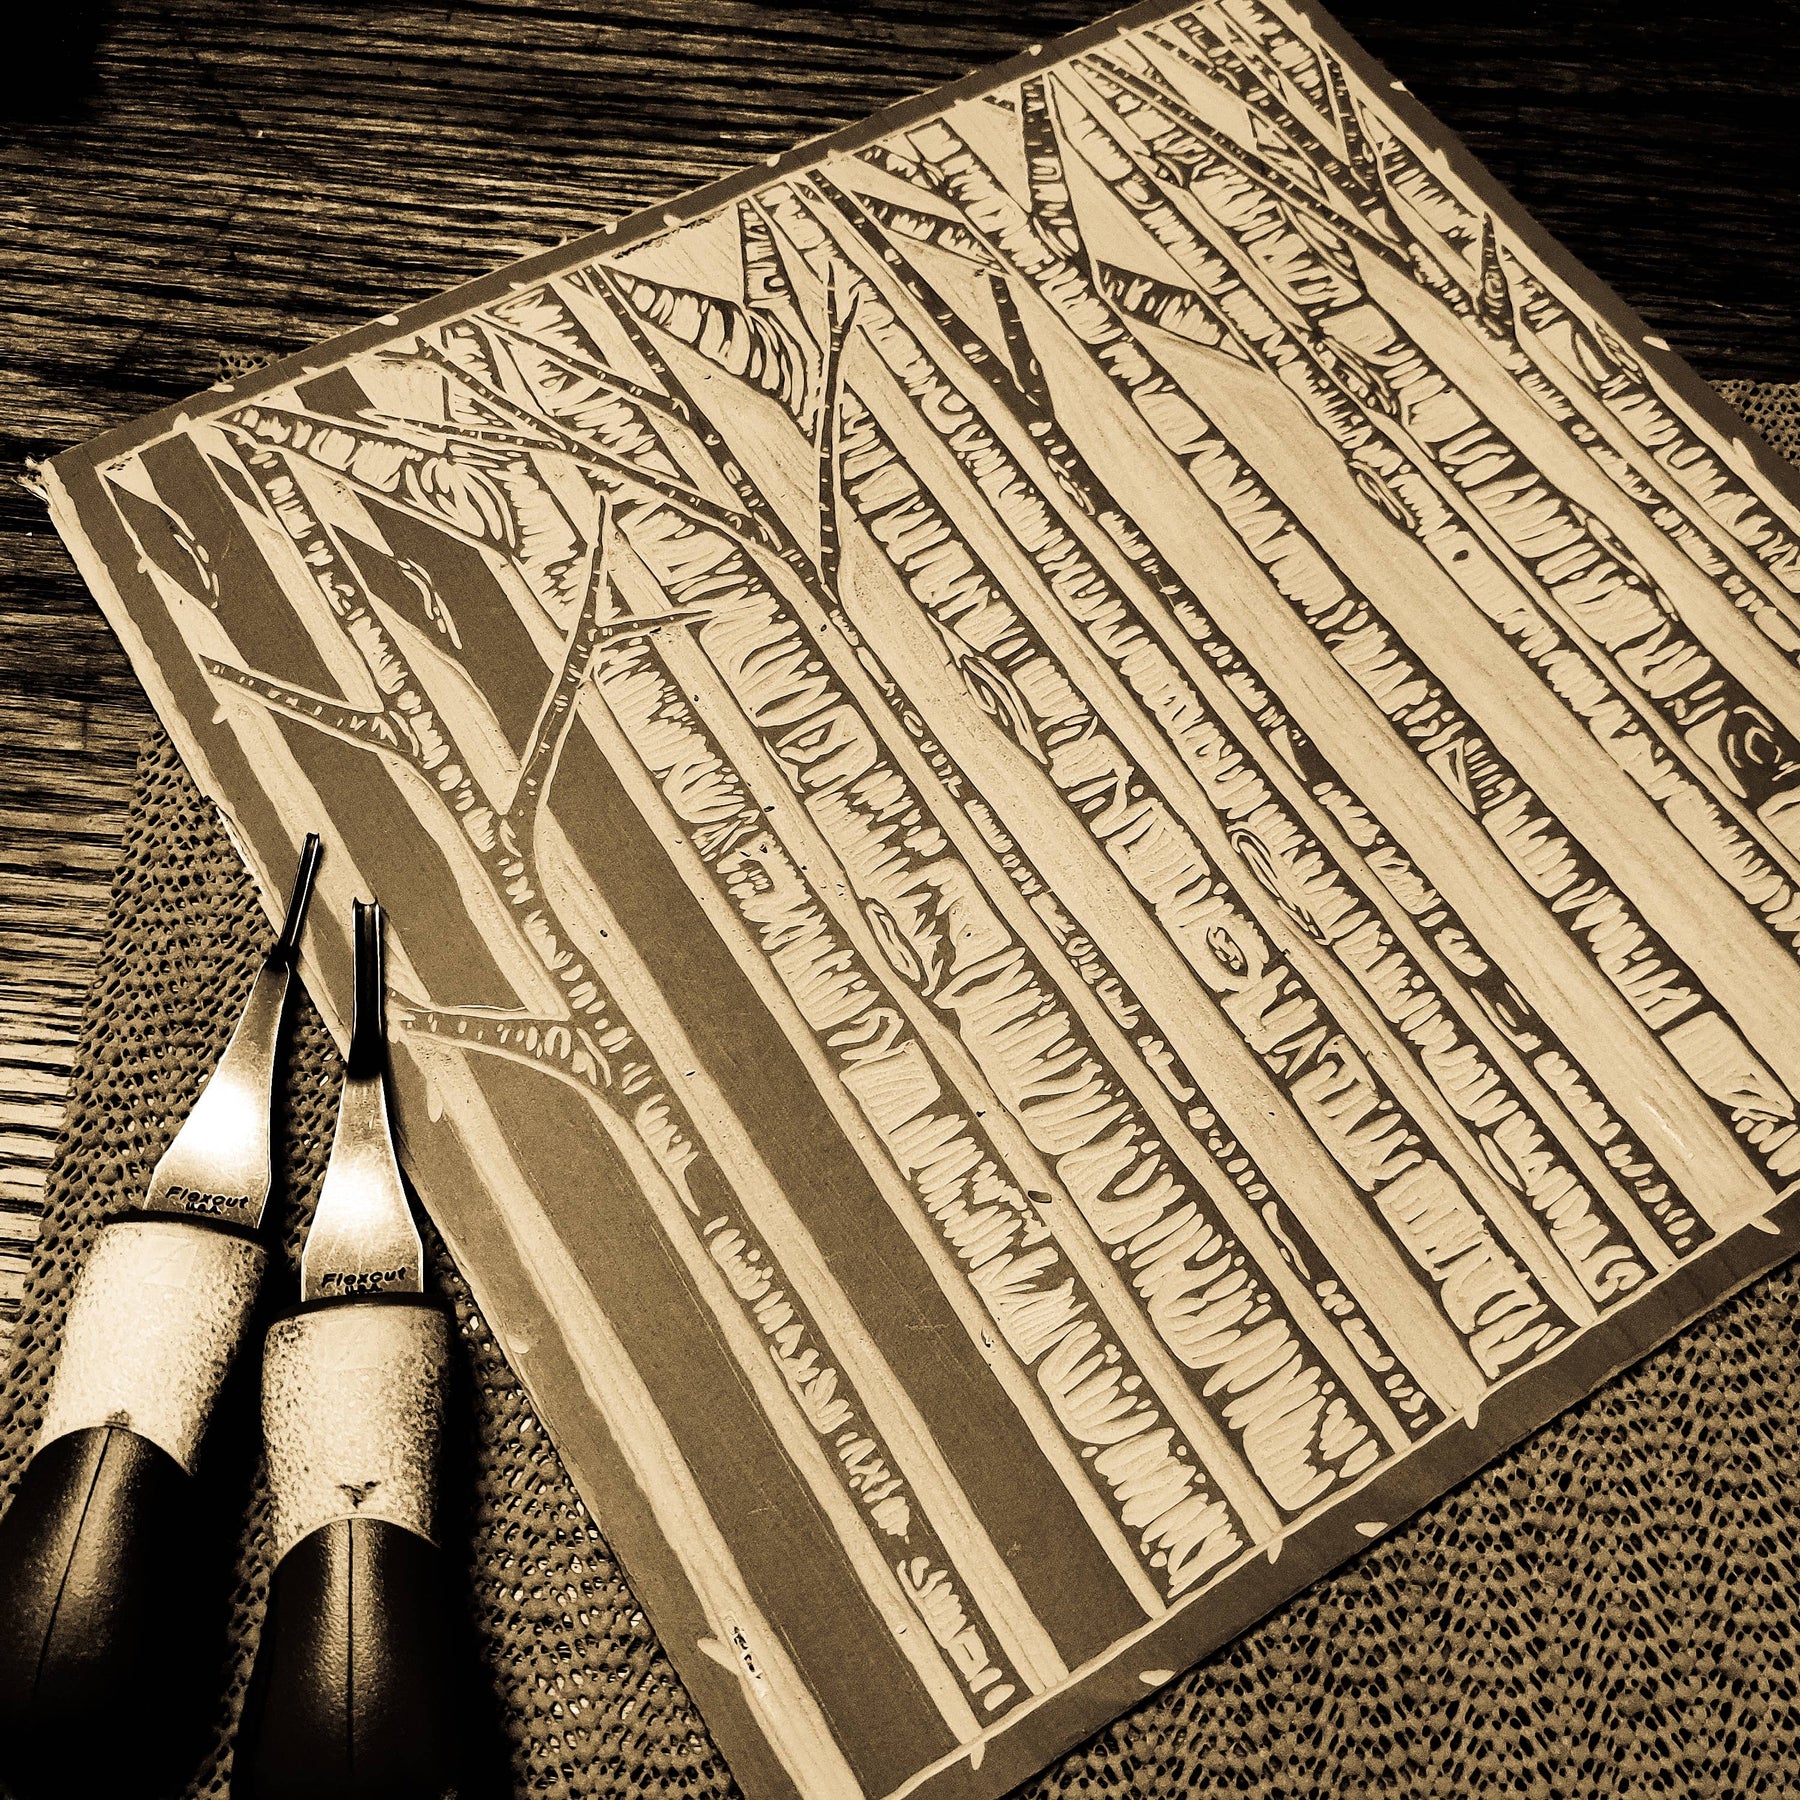 Flexcut
USA
Flexcut
USA